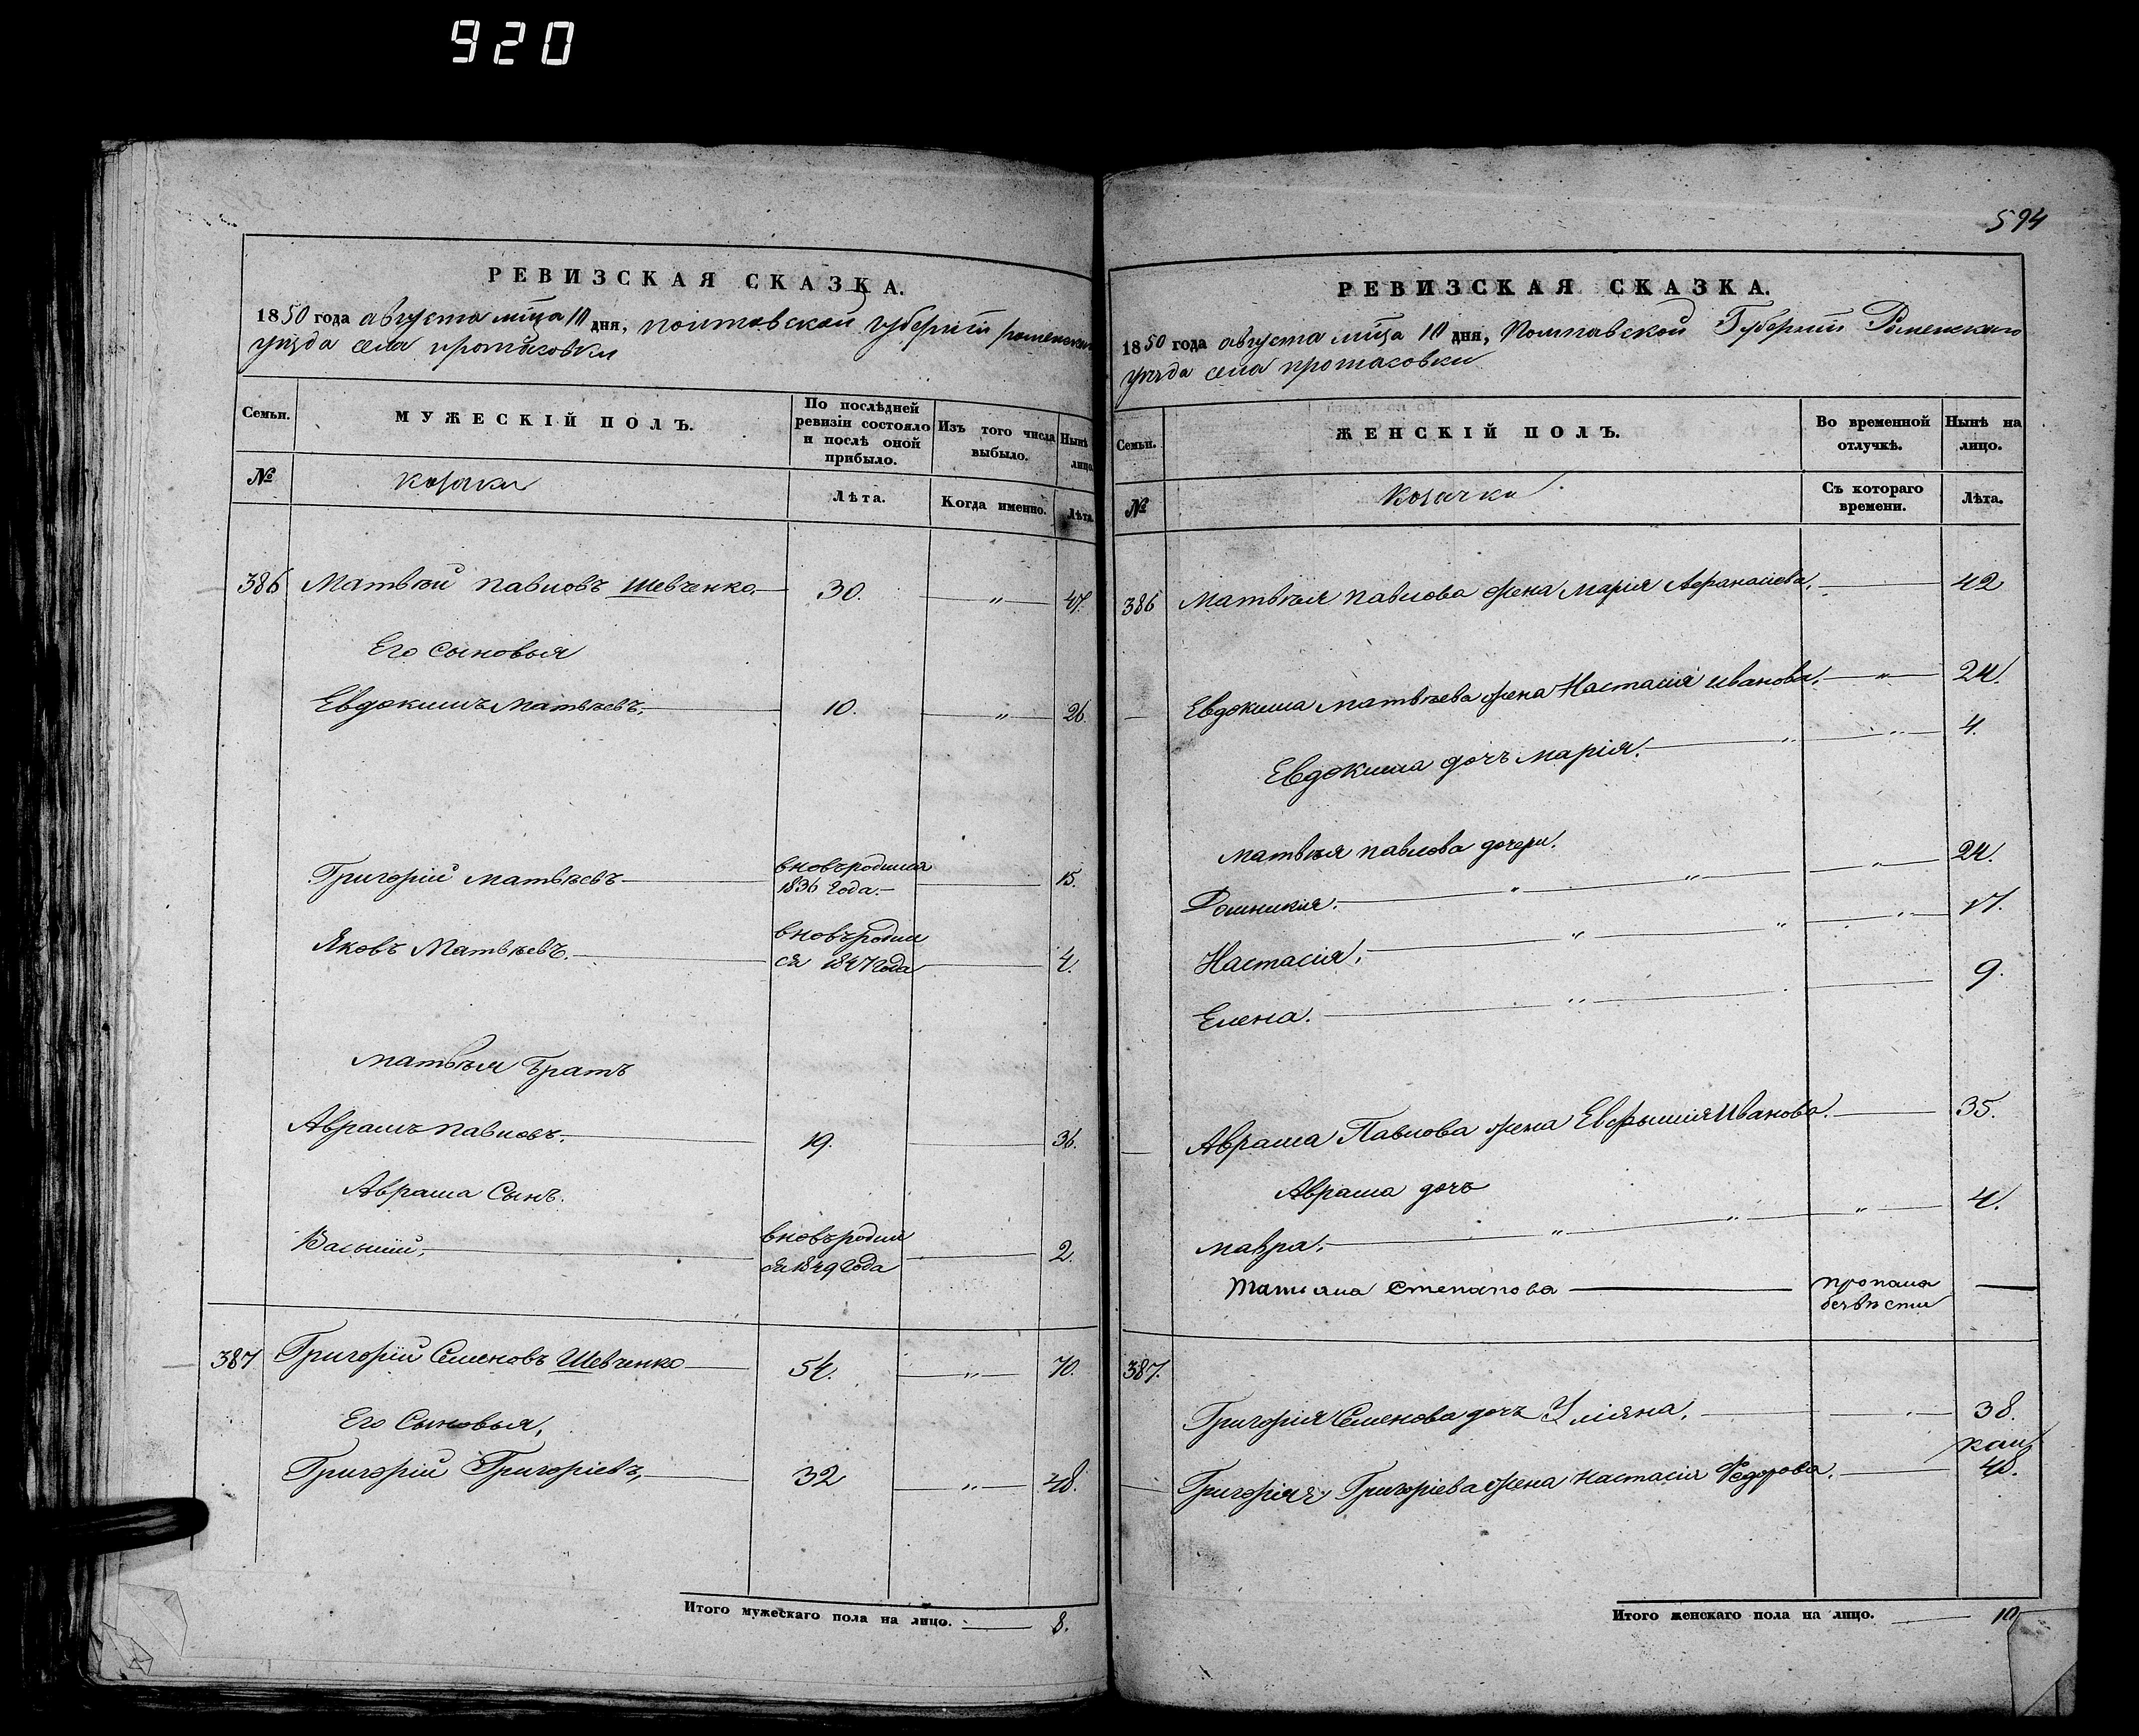 920
РЕВИЗСКАЯ СКАЗКА.
1850 года августа мца 10 дня, полтавской губернии роменского
уезда села протасовки
Семьи.
МУЖЕСКІЙ ПОЛЪ.
По послѣдней ревизіи состояло и послѣ оной прибыло.
Изъ того числа выбыло.
Нынѣ лицо
№
козаки
Лѣта.
Когда именно.
Лѣта
386 Матвѣй павловъ Шевченко 30. „ 47.
Его сыновья
Евдокимъ Матвѣевъ, 10. „ 26.
Григорій матвѣевъ вновьродился 1836 года. 15.
Яковъ Матвѣевъ. вновьродил ся 1847 года 4.
Матвѣя братъ
Аврамъ павловъ. 19. 36.
Аврама Сынъ.
Василий, вновьродил ся 1849 года 2.
387 Григорій Семеновъ Шевченко 54. „ 70.
Его Сыновья,
Григорій Григоріевъ, 32 „ 48.
Итого мужескаго пола на лицо. 8.
594
РЕВИЗСКАЯ СКАЗКА.
1850 года августа мца 10 дня, Полтавской Губерніи Роменскаго
уезда села протасовки
Семьи.
ЖЕНСКІЙ ПОЛЪ.
Во временной отлучкѣ.
Нынѣ на лицо.
№
Козачки
Съ котораго времени.
Лѣта.
386 Матвѣя павлова жена Марія Афанасіева. 42
Евдокима матвѣева жена Настасія иванова. „ 24.
Евдокима дочъ марія. „ „ 4.
Матвѣя павлова дочери.
Домникія. „ „ „ 24.
Настасія, „ „ „ 17.
Елена. „ 9.
Аврама Павлова жена Евфимия Иванова. 35.
Аврама дочъ
мавра, „ „ „ 4.
Татияна Степанова пропала безвѣсти
387.
Григорія Семенова дочъ Уліяна, 38.
Григорія Григоріева жена настасія Федорова. 48.
Итого женскаго пола на лицо. 10